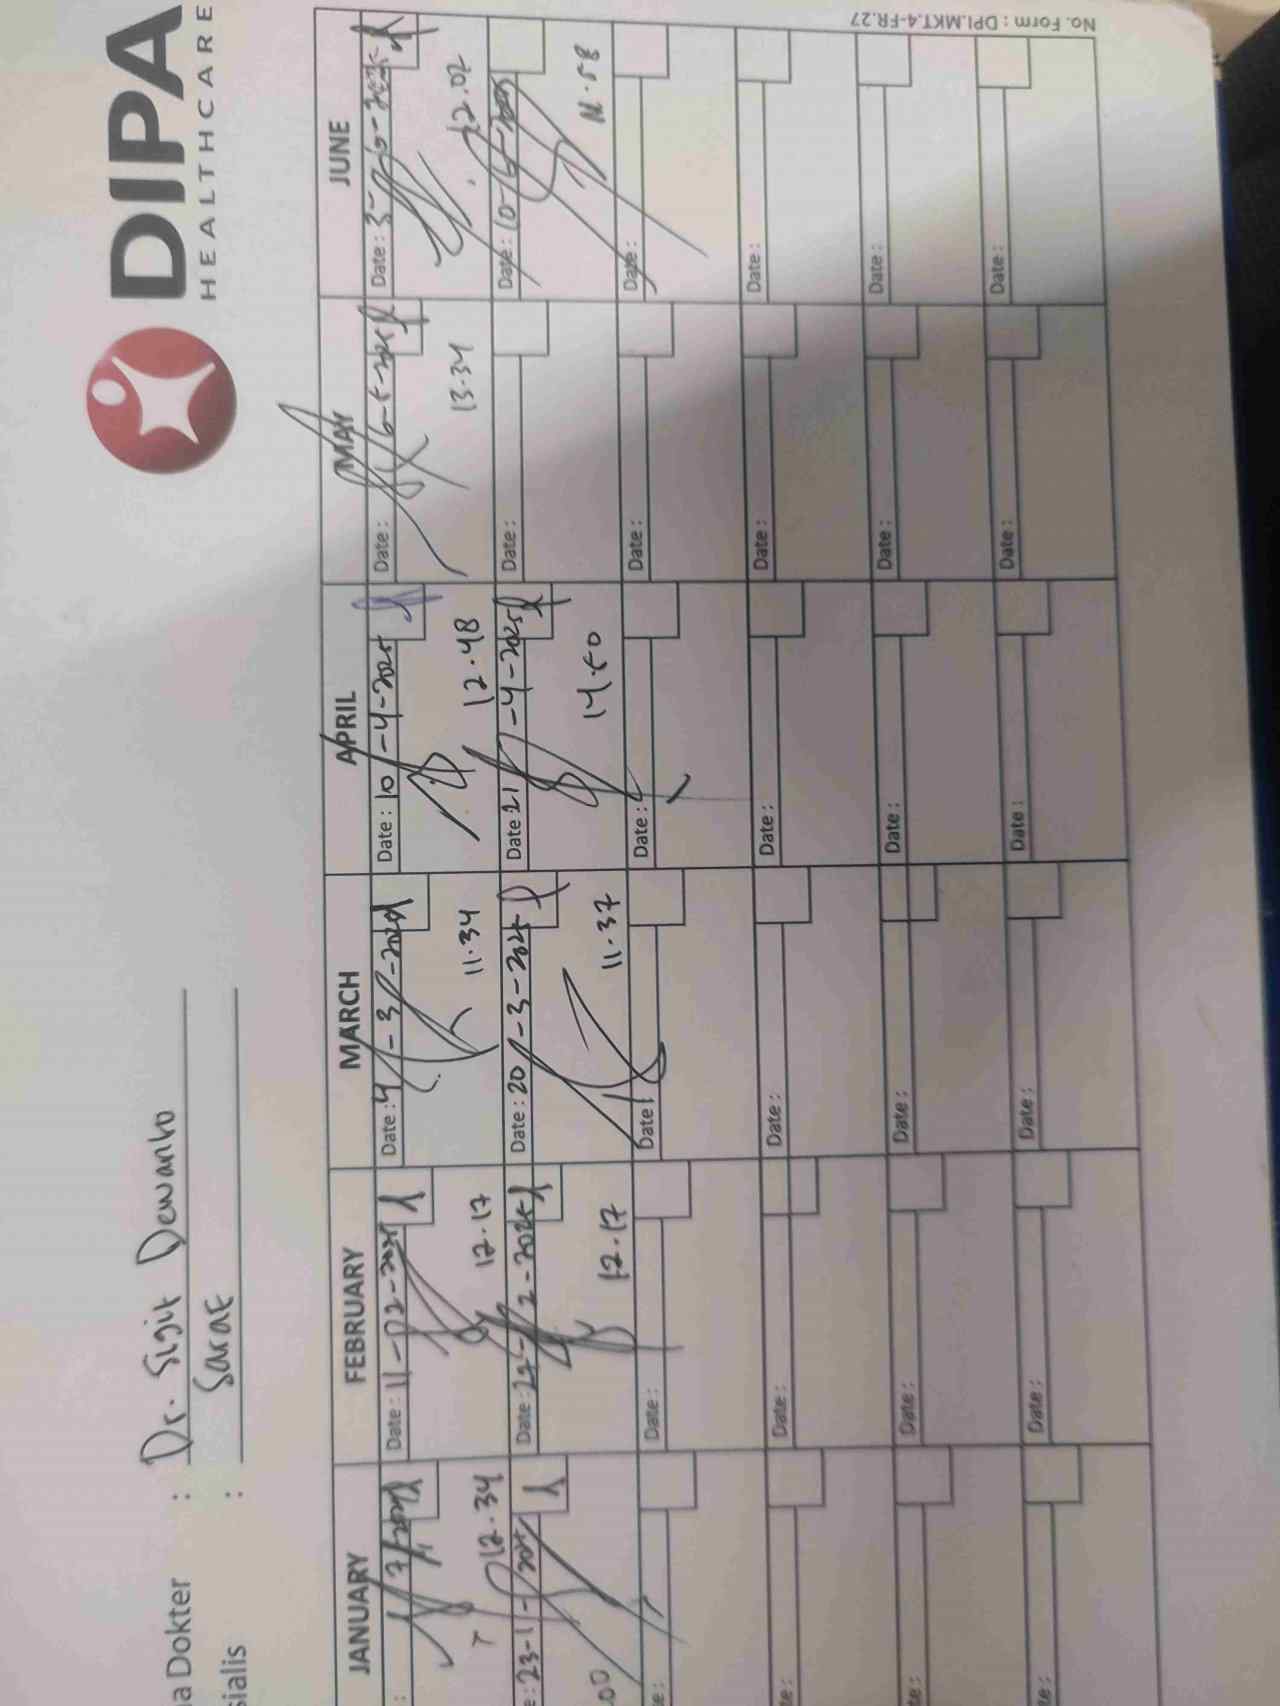 DIPA
HEALTHCARE
a Dokter : Dr. Sigit Dewanto
sialis : Saraf
JANUARY FEBRUARY MARCH APRIL MAY JUNE
: 7/ Date : 11-02-2025 Date : 4-3-2025 Date : 10-4-2025 Date : 6-5-2025 Date : 3-6-2025
12.34 12.17 11.34 12.48 13.34 12.02
e : 23-1-2025 Date : 2-2025 Date : 20-3-2025 Date : 21-4-2025 Date : Date : 10-6-2025
.00 12.17 11.37 14.50 12.58
e : Date : Date : Date : Date : Date :
te : Date : Date : Date : Date : Date :
te : Date : Date : Date : Date : Date :
te : Date : Date : Date : Date : Date :
No. Form : DPI.MKT.4-FR.27